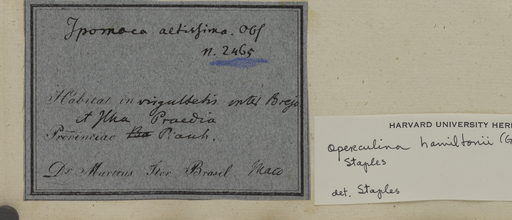 Ipomaea altissima. Obs
n. 2465
Habitat in virgultetis inter Brejo
et Ilha Praedia
Provinciae Piauh.
Dr. Martius Iter Brasil.
HARVARD UNIVERSITY HER
Operculina hamiltonii (G
Staples
det. Staples